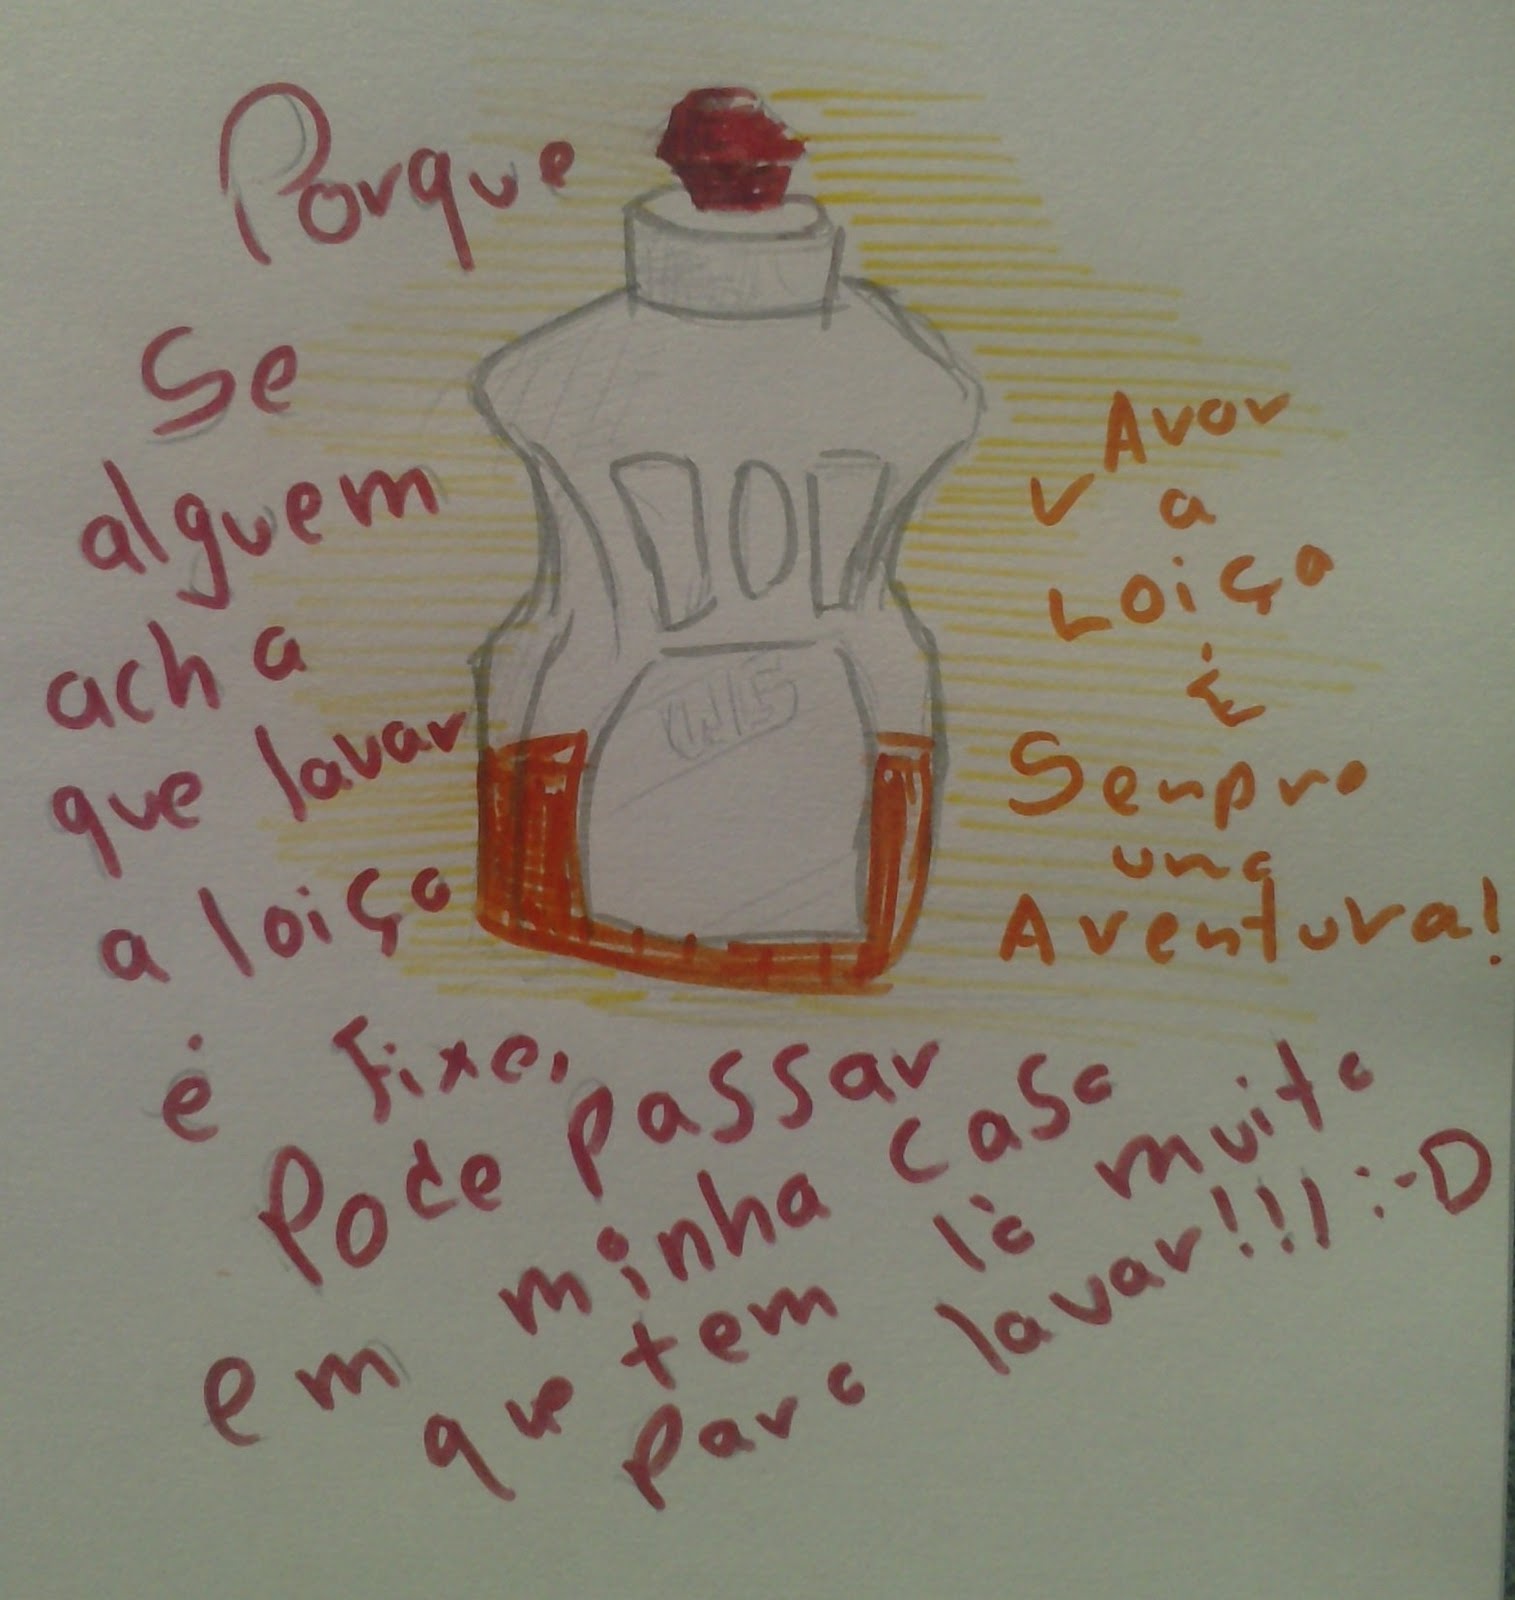 Porque
Se
alguem
acha
que lavar
a loiça
é fixe,
Pode passar
em minha casa
que tem lá muita
para lavar!!!! :-D
W5
Lavar
a
Loiça
é
Sempre
uma
Aventura!